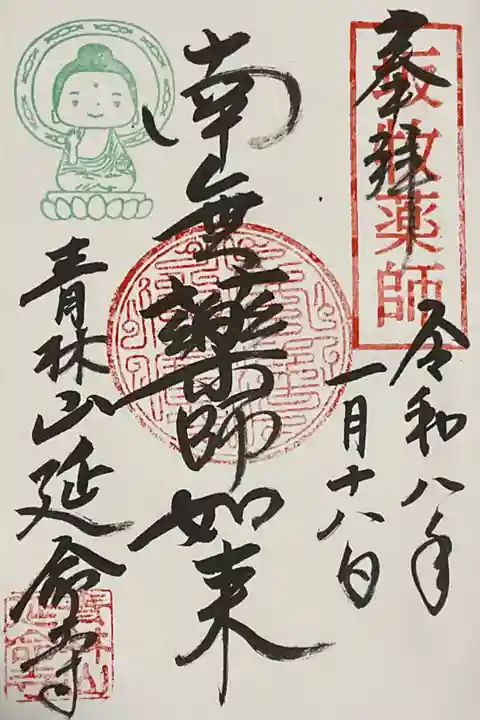 奉拝
令和八年
一月十八日
南無薬師如来
青林山延命寺
牧薬師